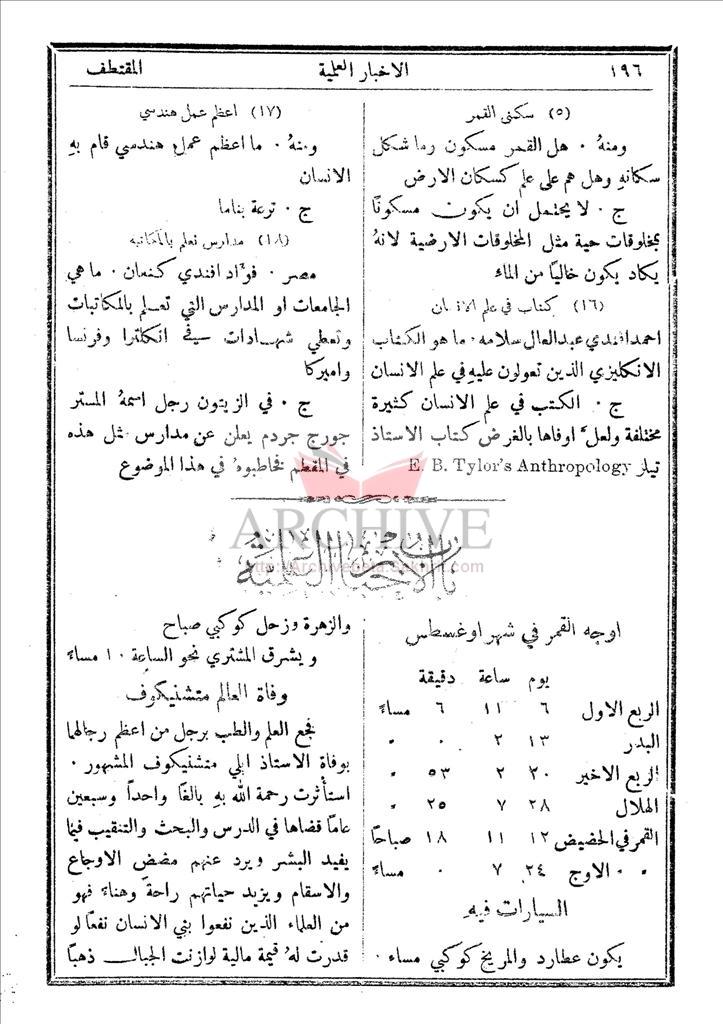 ١٩٦
الاخبار العلمية
المقتطف
(٥) سكنى القمر
ومنهُ ٠ هل القمر مسكون وما شكل
سكانهِ وهل هم على علم كسكان الارض
ج ٠ لا يحتمل ان يكون مسكونًا
بمخلوقات حية مثل المخلوقات الارضية لانهُ
يكاد يكون خاليًا من الماء
(١٦) كتاب في علم الانسان
احمد افندي عبدالعال سلامه ٠ ما هو الكتاب
الانكليزي الذين تعولون عليهِ في علم الانسان
ج ٠ الكتب في علم الانسان كثيرة
مختلفة ولعلَّ اوفاها بالغرض كتاب الاستاذ
تيلر E. B. Tylor's Anthropology
(١٧) اعظم عمل هندسي
ومنهُ ٠ ما اعظم عمل هندسي قام بهِ
الانسان
ج ٠ ترعة بناما
(١٨) مدارس تعلم بالمكاتبه
مصر ٠ فؤاد افندي كنعان ٠ ما هي
الجامعات او المدارس التي تعلم بالمكاتبات
وتعطي شهادات في انكلترا وفرنسا
واميركا
ج ٠ في الزيتون رجل اسمهُ المستر
جورج جردم يعلن عن مدارس مثل هذه
في المقطم فخاطبوهُ في هذا الموضوع
ARCHIVE
باب الاخبار العلمية
اوجه القمر في شهر اوغسطس
يوم ساعة دقيقة
الربع الاول ٦ ١١ ٦ مساءً
البدر ١٣ ٢ ٠ "
الربع الاخير ٢٠ ٢ ٥٣ "
الهلال ٢٨ ٧ ٢٥ "
القمر في الحضيض ١٢ ١١ ١٨ صباحًا
" " الاوج ٢٤ ٧ ٠ مساءً
السيارات فيه
يكون عطارد والمريخ كوكبي مساء ٠
والزهرة وزحل كوكبي صباح
ويشرق المشتري نحو الساعة ١٠ مساءً
وفاة العالم متشنيكوف
فجع العلم والطب برجل من اعظم رجالهما
بوفاة الاستاذ ايلي متشنيكوف المشهور ٠
استأثرت رحمة الله بهِ بالغًا واحدًا وسبعين
عامًا قضاها في الدرس والبحث والتنقيب فيما
يفيد البشر ويرد عنهم مضض الاوجاع
والاسقام ويزيد حياتهم راحة وهناء فهو
من العلماء الذين نفعوا بني الانسان نفعًا لو
قدرت لهُ قيمة مالية لوازنت الجبال ذهبًا